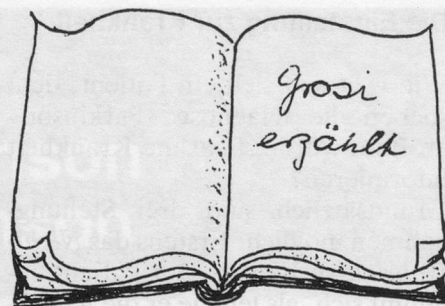 Grosi
erzählt